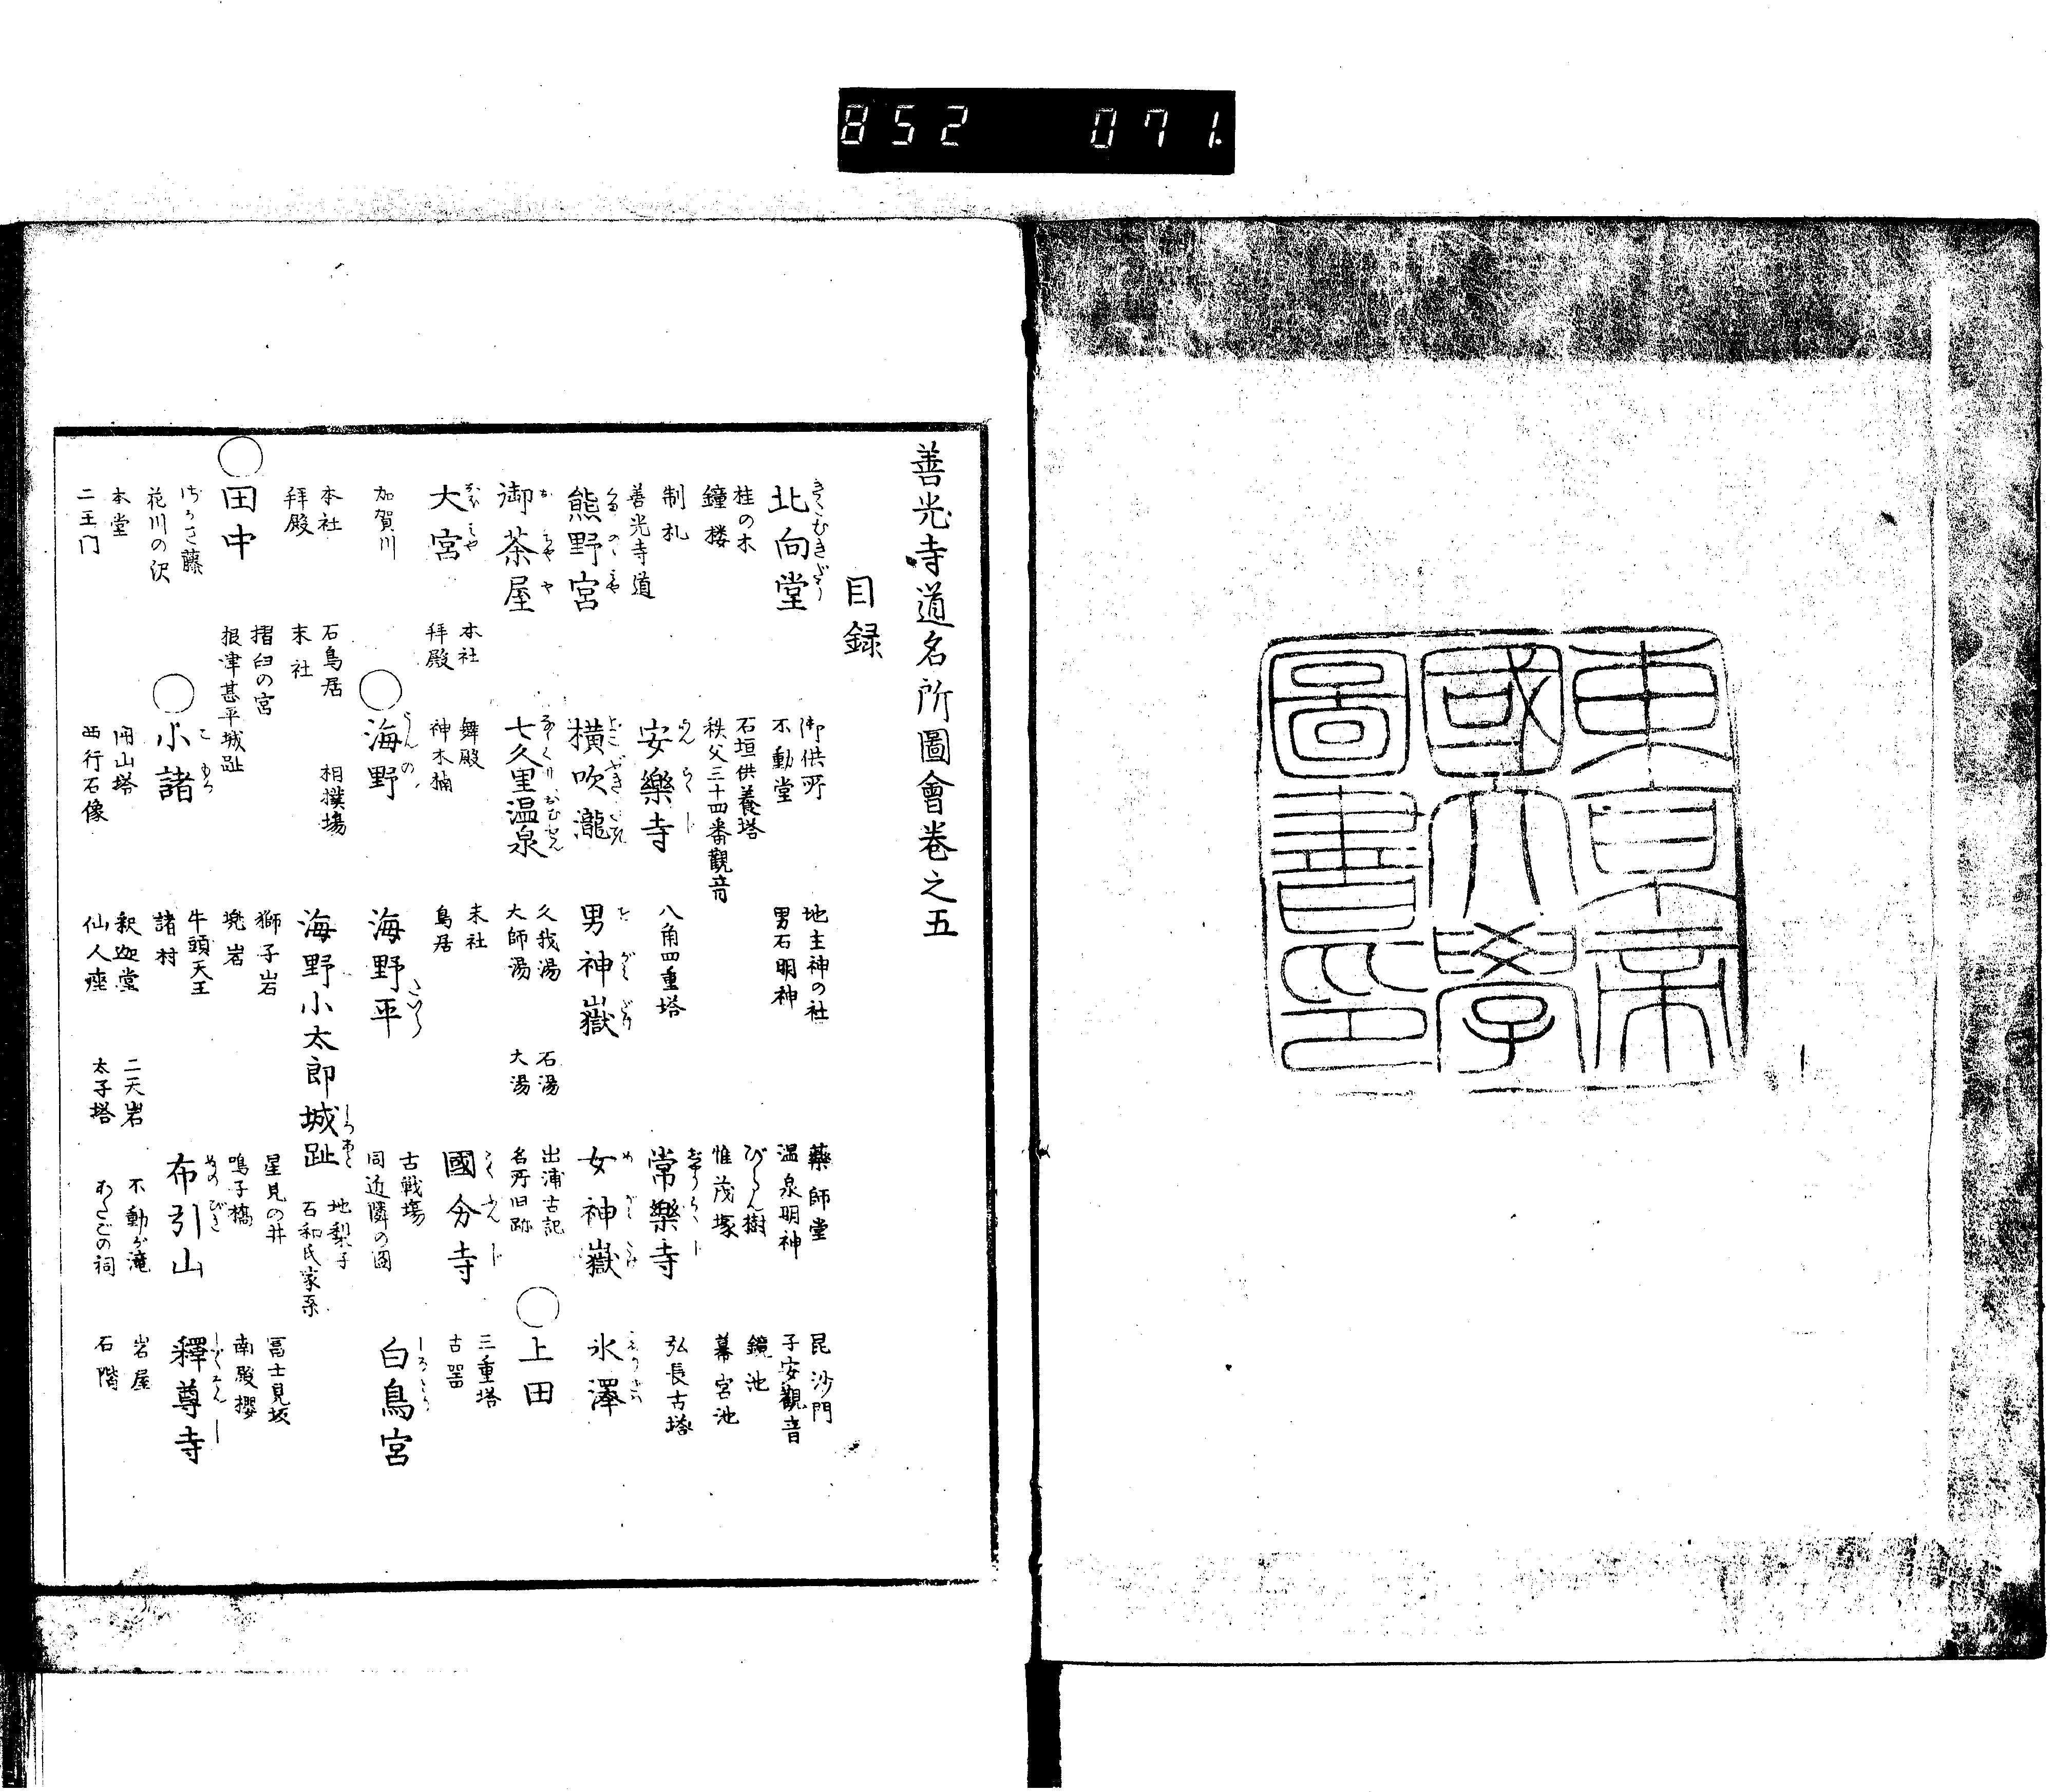 852 071.
東京帝
國大學
圖書印
善光寺道名所圖會巻之五
目録
北向堂 御供所 地主神の社 藥師堂 昆沙門
不動堂 男石明神 温泉明神 子安觀音
桂の木 石垣供養塔 びらん樹 鏡池
鐘楼 秩父三十四番觀音 惟茂塚 幕宮池
制札 安樂寺 八角四重塔 常樂寺 弘長古塔
善光寺道
熊野宮 横吹瀧 男神嶽 女神嶽 氷澤
御茶屋 七久里温泉 久我湯 石湯 出浦古記 ○上田
大師湯 大湯 名所旧跡
大宮 本社 舞殿 末社 國分寺 三重塔
拝殿 神木楠 鳥居 古器
加賀川 ○海野 海野平 古戦場 白鳥宮
同近隣の圖
本社 石鳥居 相撲場 海野小太郎城趾 地梨子
拝殿 末社 石和氏家系
摺臼の宮 獅子岩 星見の井 冨士見坂
○田中 根津甚平城趾 兠岩 鳴子橋 南殿櫻
藤 ○小諸 牛頭天王 布引山 釋尊寺
花川の沢 諸村
本堂 開山塔 釈迦堂 二天岩 不動が滝 岩屋
二王門 西行石像 仙人座 太子塔 の祠 石階